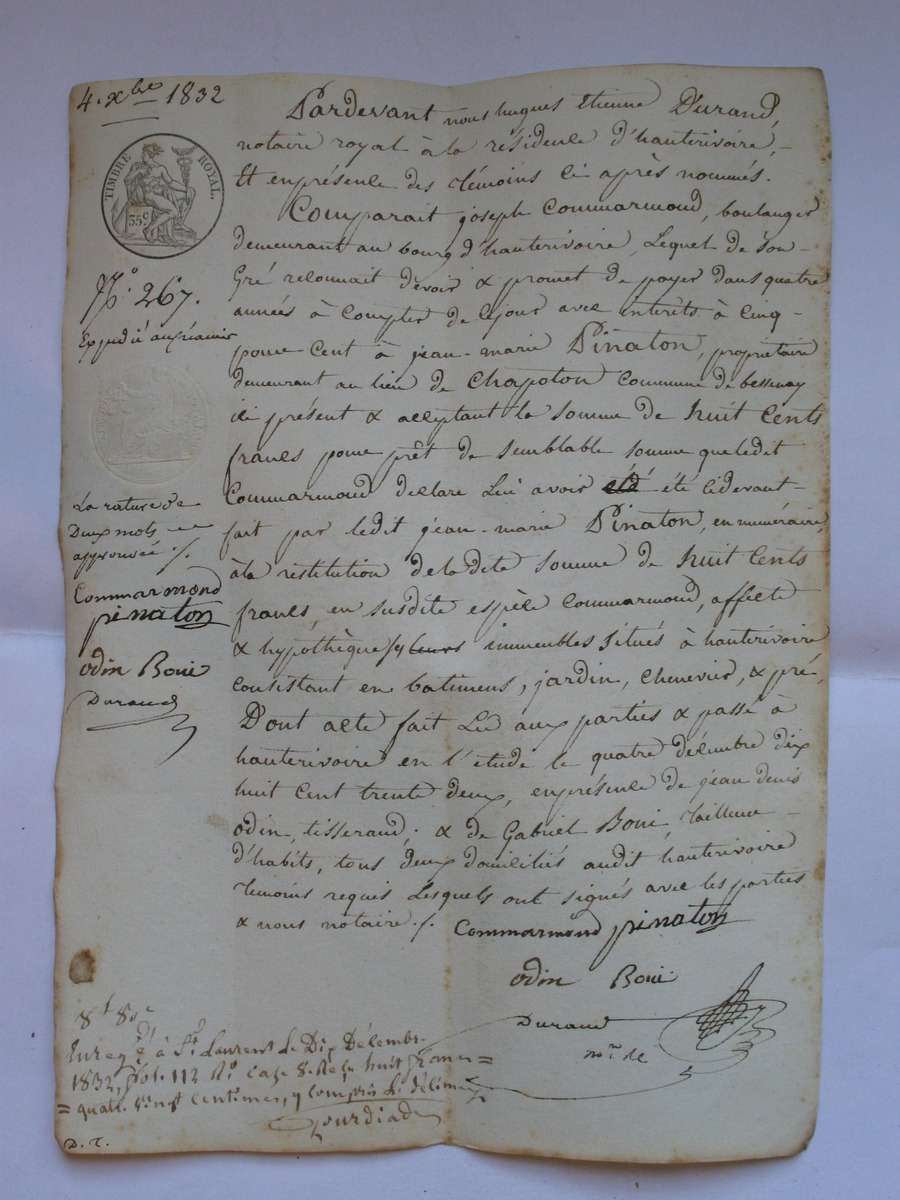 4. Xbre 1832
TIMBRE ROYAL.
35 c
N.° 267.
Expédié au créancier
La rature de
Deux mots
approuvée ./.
Commarmond
pinaton
odin Boui
Durand
Pardevant nous hugues Etienne Durand,
notaire royal à la résidence d'hauterivoire,
Et en présence des témoins ci après nommés.
Comparait joseph Commarmond, boulanger
demeurant au bourg d'hauterivoire, Lequel de son
Gré reconnait devoir & promet de payer dans quatre
années à Compter de ce jour avec intérêts à Cinq
pour Cent à jean-marie Pinaton, propriétaire
demeurant au lieu de Chapoton Commune de bessenay
ici présent & acceptant la somme de huit Cents
francs pour prêt de semblable somme que ledit
Commarmond déclare Lui avoir été été cidevant
fait par ledit jean-marie Pinaton, en numéraire,
à la restitution de la dite somme de huit Cents
francs, en susdite espèce Commarmond, affecte
& hypothèque immeubles situés à hauterivoire
Consistant en batimens, jardin, Chenevier, & pré,
Dont acte fait Lu aux parties & passé à
hauterivoire en l'étude le quatre décembre dix
huit Cent trente deux, en présence de jean denis
odin, tisserand; & de Gabriel Boui, tailleur
d'habits, tous deux domiciliés audit hauterivoire
témoins requis Lesquels ont signés avec les parties
& nous notaire ./. Commarmond pinaton
odin Boui
Durand
nre
8f 80c
Enregé à St. Laurent Le Dix Décembre
1832, fol. 112 Ro Case 8. Reçu huit francs
quatre Vingt Centimes, y Compris le décime
D. T.